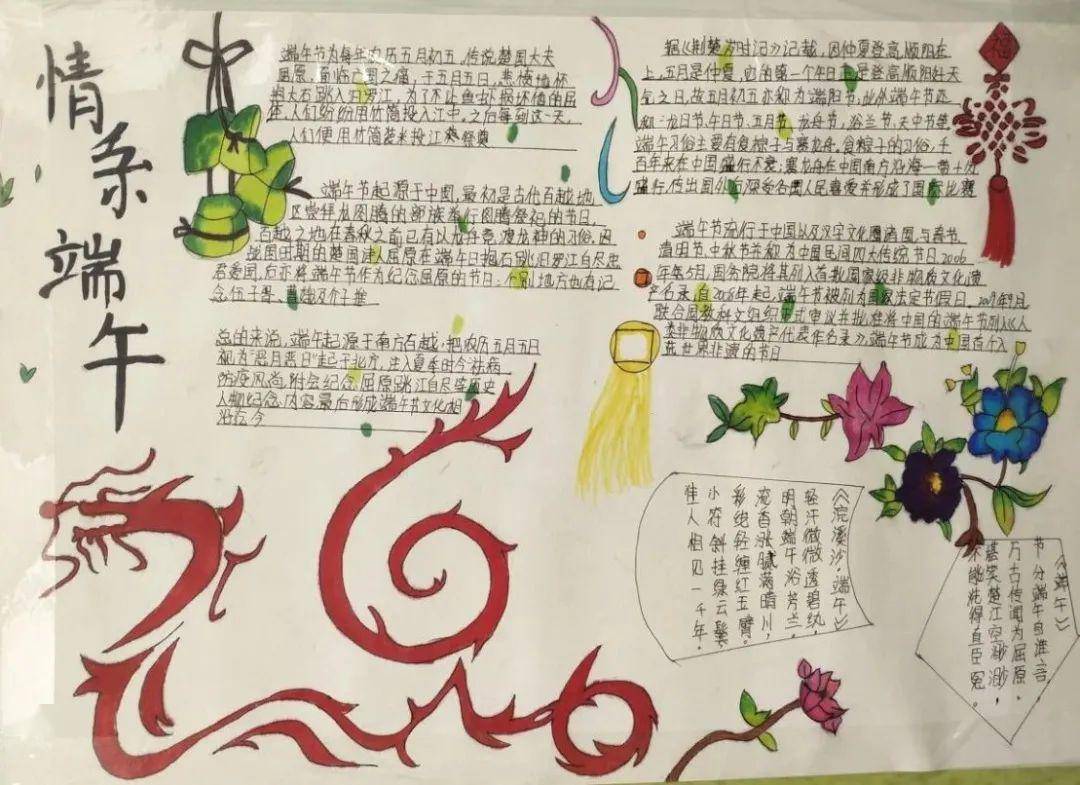 情系端午
端午节为每年农历五月初五,传说楚国大夫
屈原,面临亡国之痛,于五月五日,悲愤地怀
抱大石跳入汨罗江,为了不让鱼虾损坏他的屈
人们纷纷用竹筒投入江中,之后每到这一天,
人们便用竹筒装米投江 祭奠
端午节起源于中国,最初是古代百越地
区崇拜龙图腾的部族举行图腾祭祀的节日,
百越之地在春秋之前已有以龙舟竞渡龙神的习俗,因
战国时期的楚国诗人屈原在端午日抱石跳汨罗江自尽忠
君爱国,后亦将端午节作为纪念屈原的节日;个别地方也有记
念伍子胥、曹娥及介子推
总的来说,端午起源于南方百越,把农历五月五日
视为“恶月恶日”起于北方,注入夏季时令祛病
防疫风尚,附会纪念屈原跳江自尽等历史
人物纪念内容,最后形成端午节文化相
沿至今
据《荆楚岁时记》记载,因仲夏登高,顺阳在
上,五月是仲夏,它的第一个午日正是登高顺阳好天
气之日,故五月初五亦称为端阳节,此外端午节还
称:龙日节,午日节,五月节,龙舟节,浴兰节,天中节等
端午习俗主要有食粽子与赛龙舟,食粽子的习俗,千
百年来在中国盛行不衰;赛龙舟在中国南方沿海一带十分
盛行,传出国外后深受各国人民喜爱并形成了国际比赛
端午节流行于中国以及汉字文化圈诸国,与春节、
清明节、中秋节并称为中国民间四大传统节日2006
年5月,国务院将其列入首批国家级非物质文化遗
产名录;自2008年起,端午节被列为国家法定节假日。2009年9月,
联合国教科文组织正式审议并批准将中国的端午节列入《人
类非物质文化遗产代表作名录》,端午节成为中国首个入
选世界非遗的节日
福
《浣溪沙·端午》
轻汗微微透碧纨,
明朝端午浴芳兰。
流香涨腻满晴川,
彩线轻缠红玉臂。
小符斜挂绿云鬟,
佳人相见一千年。
《端午》
节分端午自谁言
万古传闻为屈原,
堪笑楚江空渺渺,
不能洗得直臣冤。